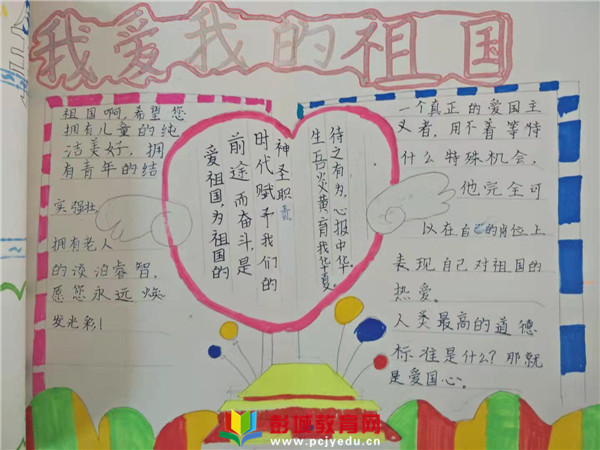 我爱我的祖国
祖国啊,希望您
拥有儿童的纯
洁美好,拥
有青年的结
实强壮
拥有老人
的淡泊睿智,
愿您永远焕
发光彩!
爱祖国,为祖国的
前途而奋斗是
时代赋予我们的
神圣职责
生吾炎黄育我华夏。
待之有为,心报中华。
一个真正的爱国主
义者,用不着等待
什么特殊机会,
他完全可
以在自己的岗位上
表现自己对祖国的
热爱。
人类最高的道德
标准是什么?那就
是爱国心。
彭城教育网
www.pcjyedu.cn